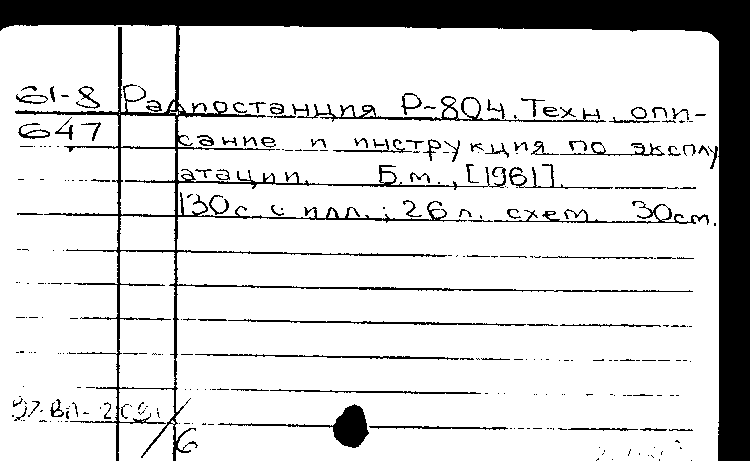 61-8 Радиостанция Р-804. Техн. опи-
647 сание и инструкция по эксплу
атации. Б.м., [1961].
130с. с илл.; 26 л. схем. 30см.
6